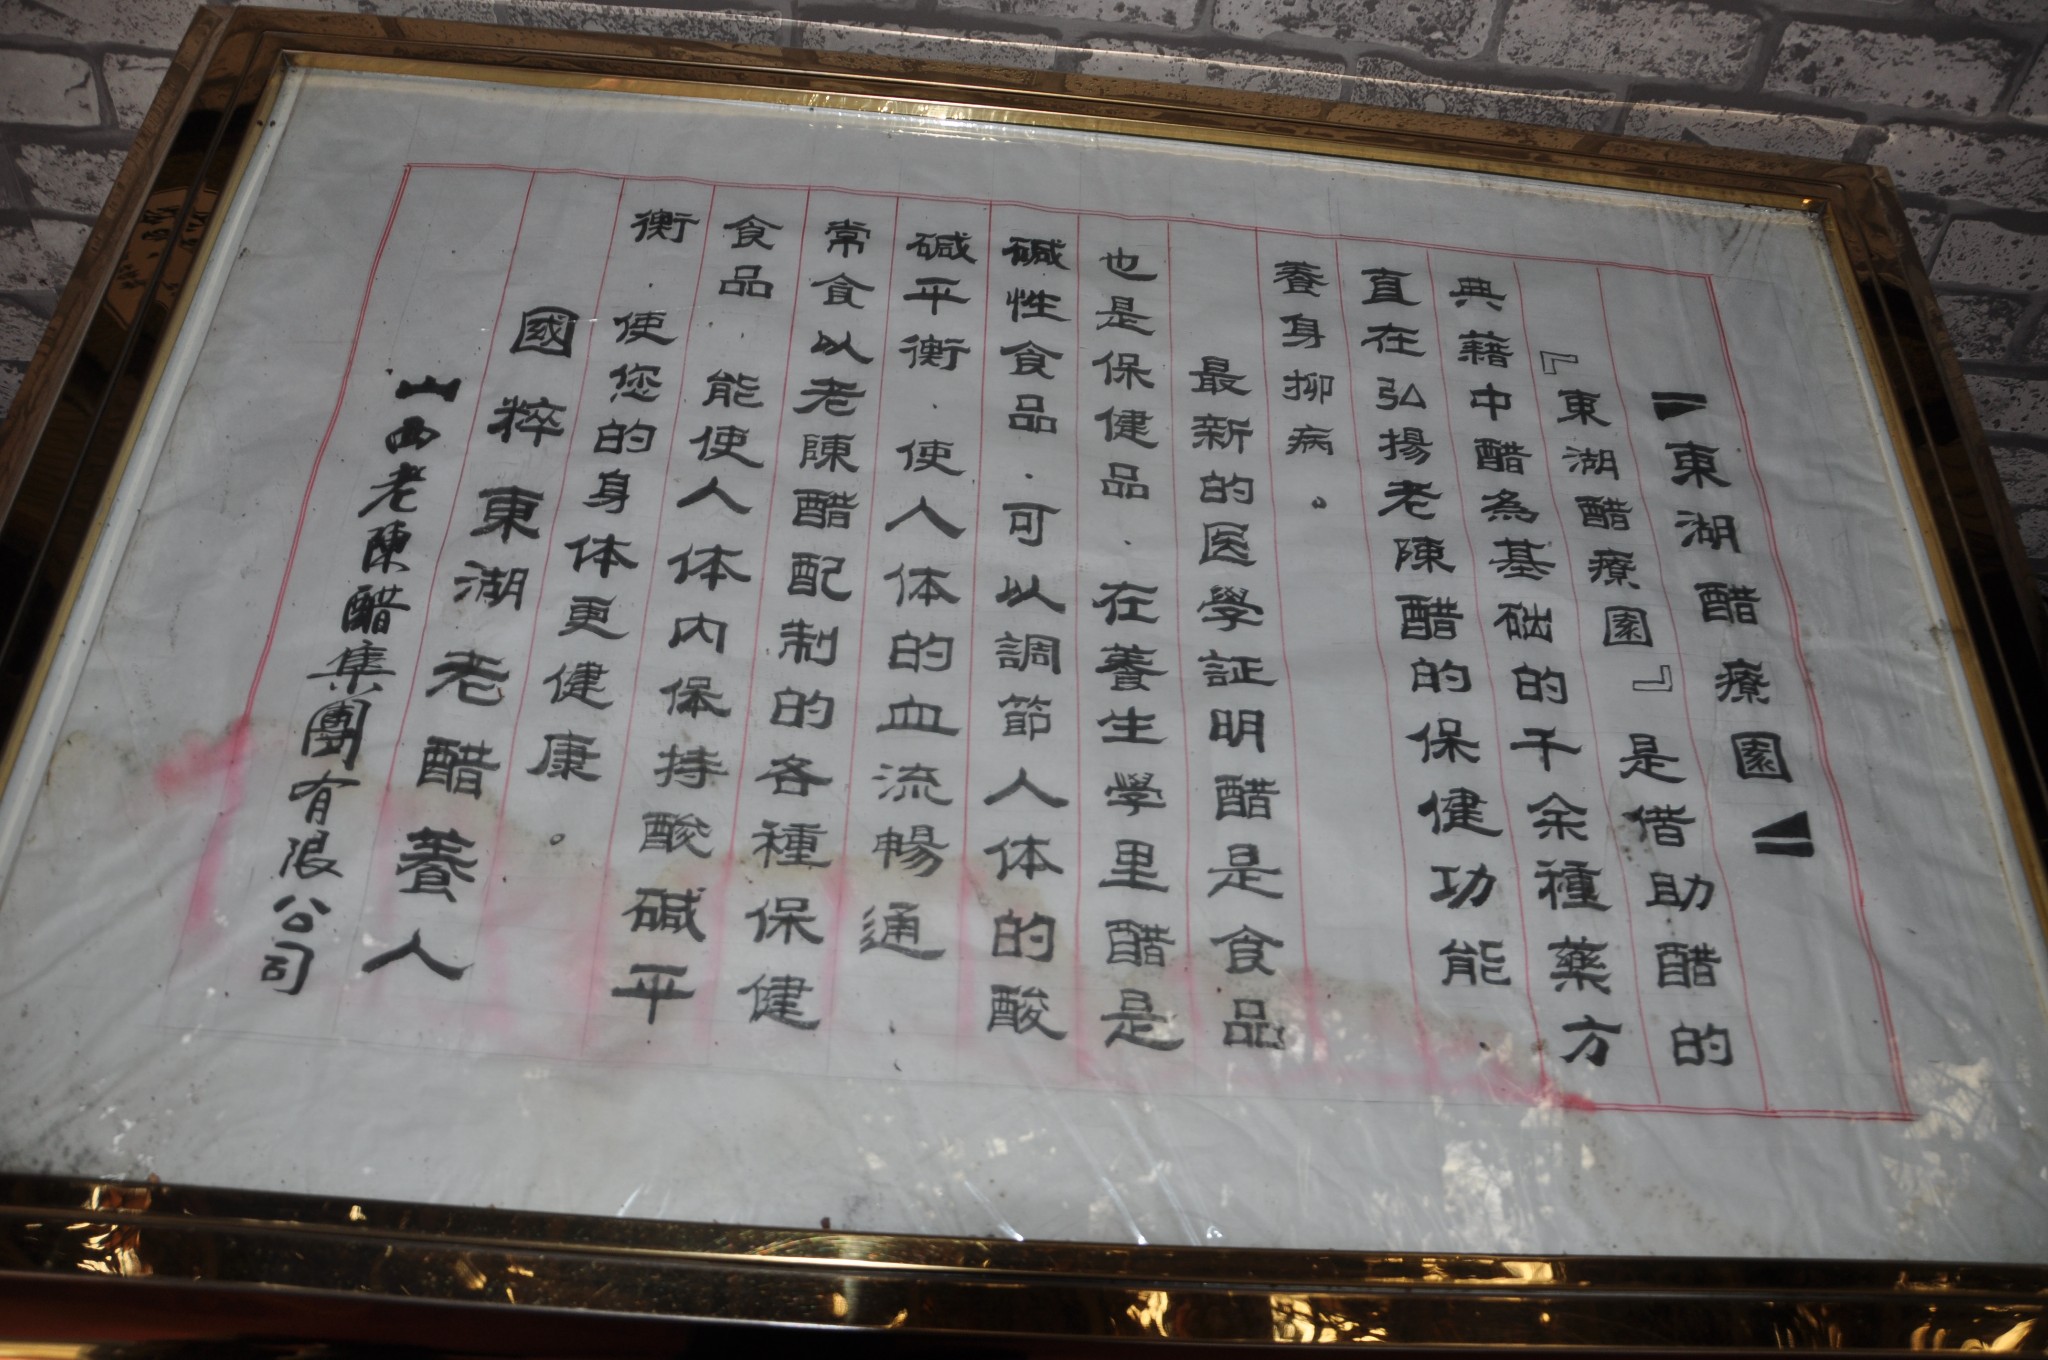 【東湖醋療園】
『東湖醋療園』是借助醋的
典藉中醋為基础的千余種藥方
直在弘揚老陳醋的保健功能.
養身抑病。
最新的医學証明醋是食品
也是保健品.在養生學里醋是
碱性食品.可以調節人体的酸
碱平衡.使人体的血流暢通.
常食以老陳醋配制的各種保健
食品.能使人体内保持酸碱平
衡.使您的身体更健康。
國粹東湖老醋養人
山西老陳醋集團有限公司